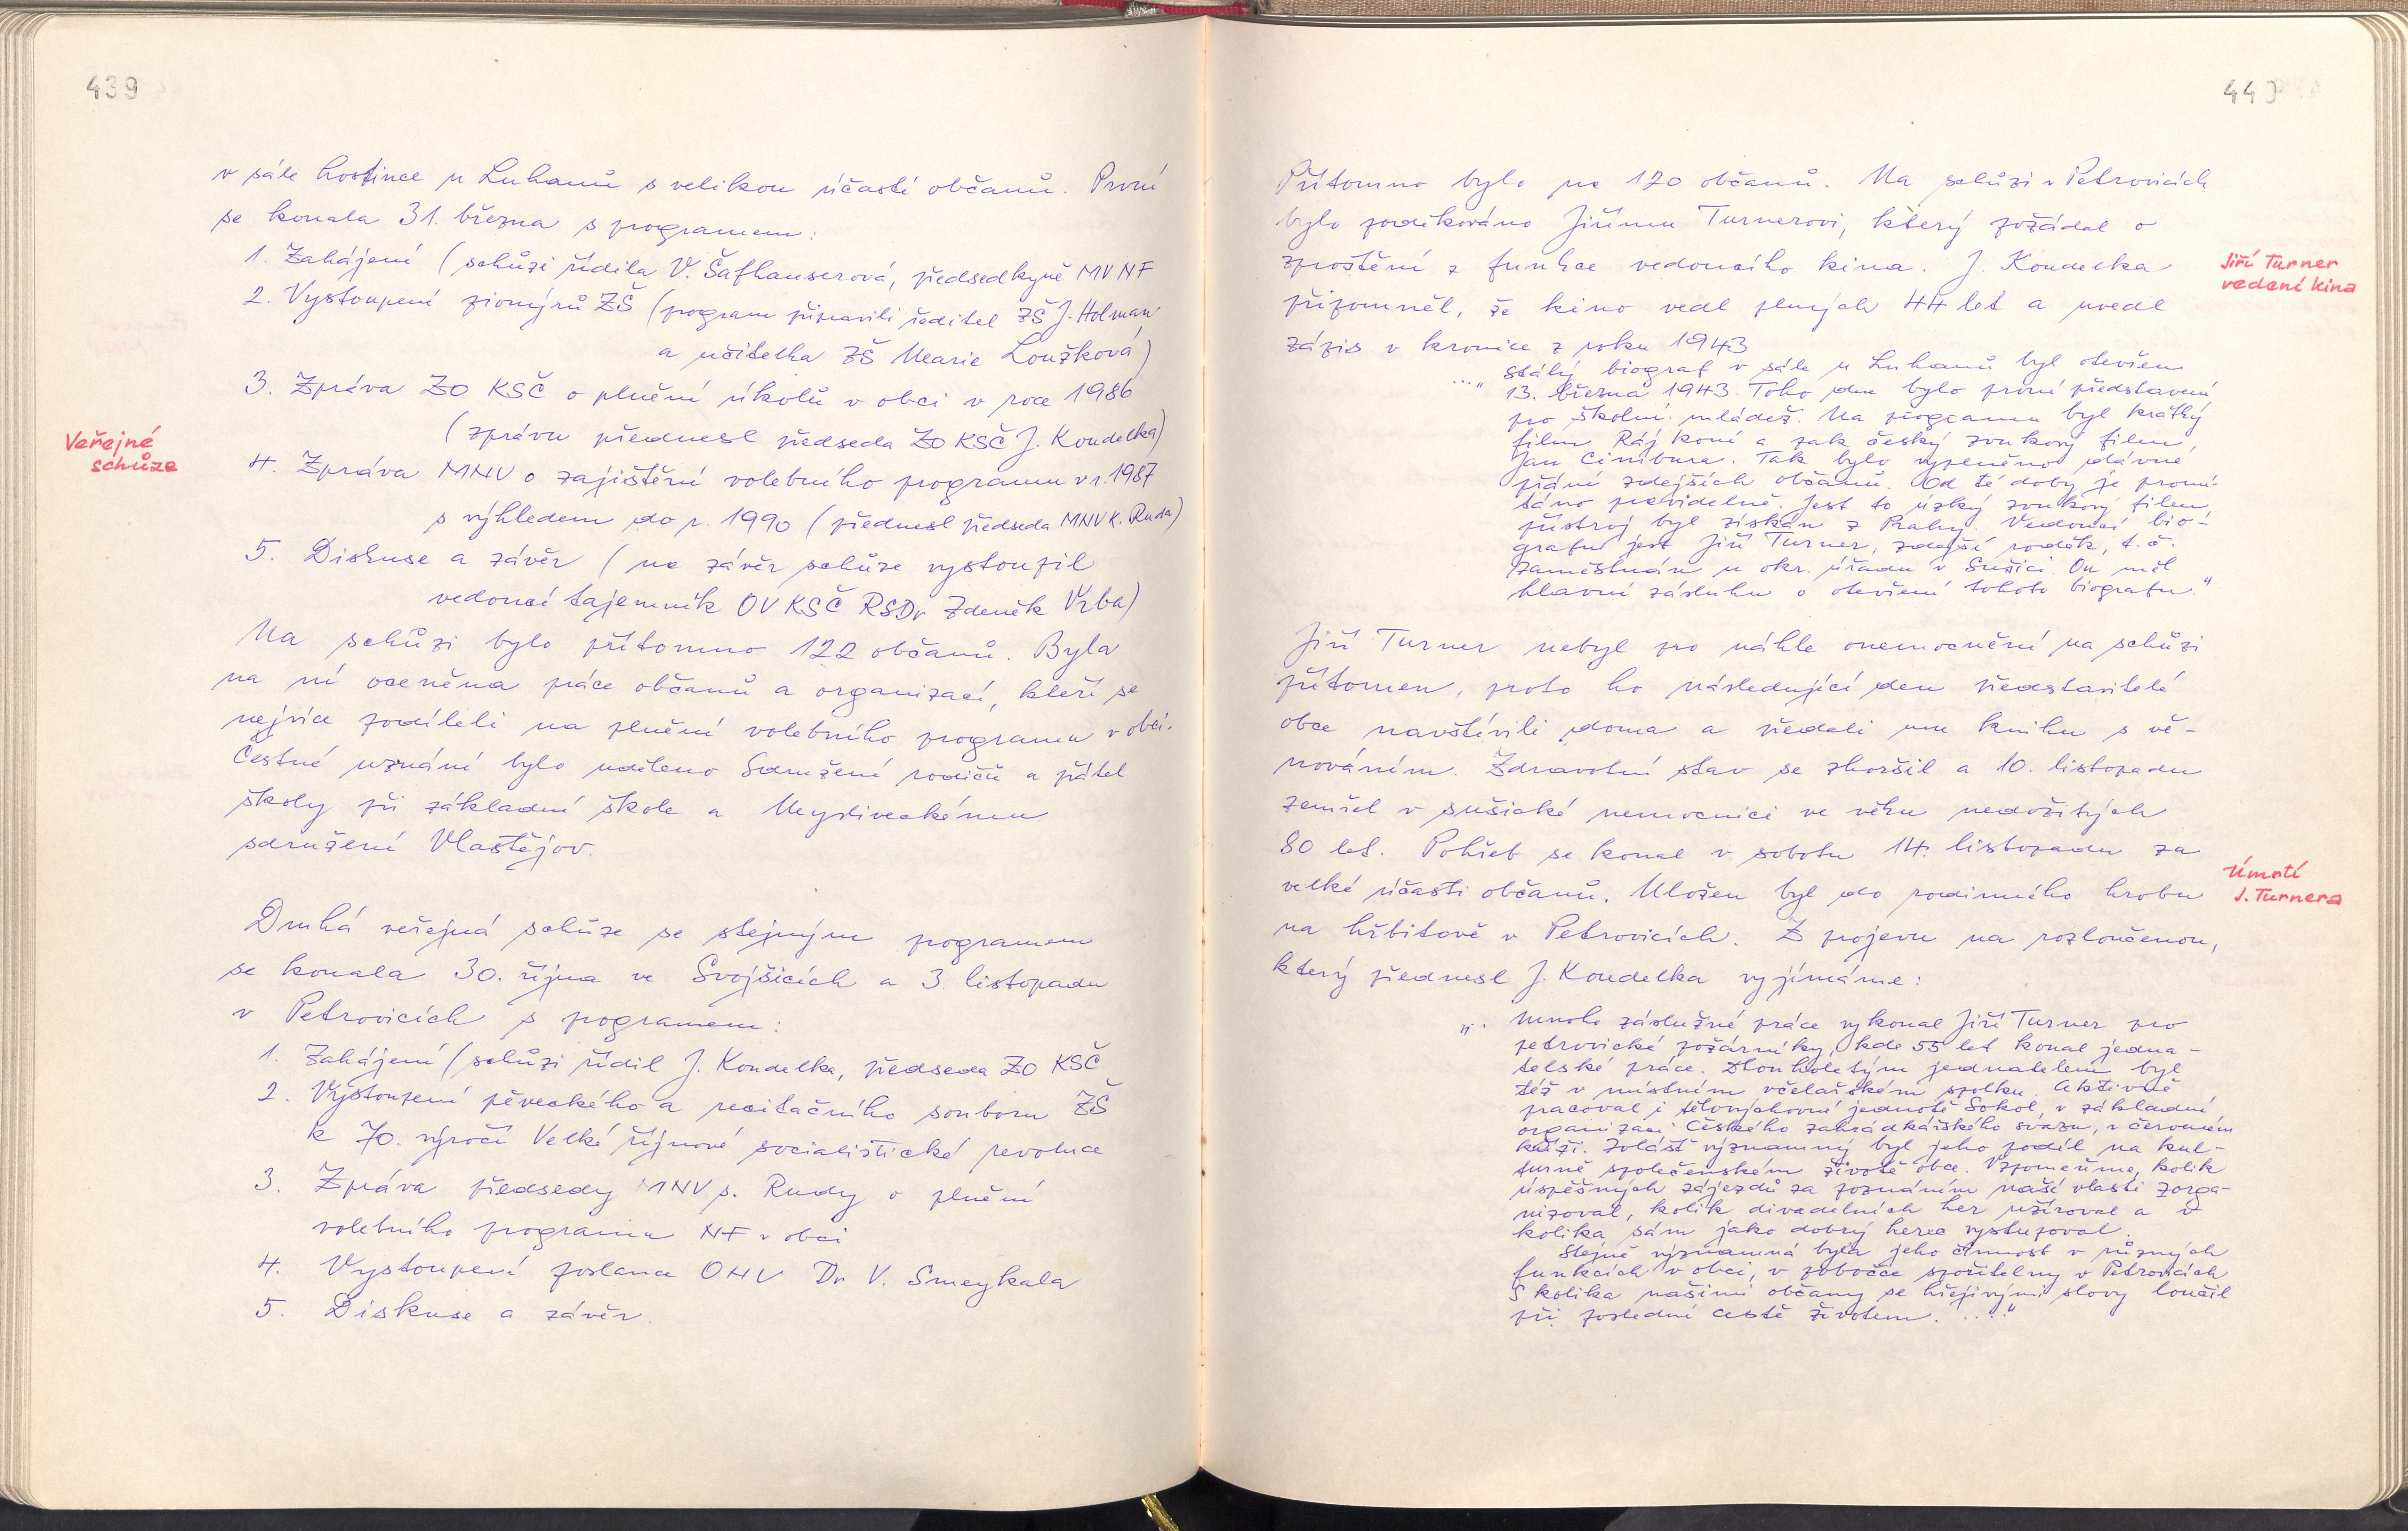 439
v sále hostince u Luhanů s velikou účastí občanů. První
se konala 31. března s programem:
1. Zahájení (schůzi řídila V. Šafhauserová, předsedkyně MV NF
2. Vystoupení pionýrů ZŠ (program připravili ředitel ZŠ J. Holman
a učitelka ZŠ Marie Loužková)
3. Zpráva ZO KSČ o plnění úkolů v obci v roce 1986
(zprávu přednesl předseda ZO KSČ J. Koudelka)
Veřejné
schůze
4. Zpráva MNV o zajištění volebního programu v r. 1987
s výhledem do r. 1990 (přednesl předseda MNV K. Ruda)
5. Diskuse a závěr (na závěr schůze vystoupil
vedoucí tajemník OV KSČ RSDr Zdeněk Vrba)
Na schůzi bylo přítomno 122 občanů. Byla
na ní oceněna práce občanů a organizací, kteří se
nejvíce podíleli na plnění volebního programu v obci.
Čestné uznání bylo uděleno Sdružení rodičů a přátel
školy při základní škole a Mysliveckému
sdružení Vlastějov.
Druhá veřejná schůze se stejným programem
se konala 30. října ve Svojšicích a 3. listopadu
v Petrovicích s programem:
1. Zahájení (schůzi řídil J. Koudelka, předseda ZO KSČ
2. Vystoupení pěveckého a recitačního souboru ZŠ
k 70. výročí Velké říjnové socialistické revoluce
3. Zpráva předsedy MNV s. Rudy o plnění
volebního programu NF v obci
4. Vystoupení poslance ONV Dr V. Smeykala
5. Diskuse a závěr
440
Přítomno bylo na 120 občanů. Na schůzi v Petrovicích
bylo poděkováno Jiřímu Turnerovi, který požádal o
zproštění z funkce vedoucího kina. J. Koudelka
připomněl, že kino vedl plných 44 let a uvedl
zápis v kronice z roku 1943
Jiří Turner
vedení kina
..." stálý biograf v sále u Luhanů byl otevřen
13. března 1943. Toho dne bylo první představení
pro školní mládež. Na programu byl krátký
film Ráj koní a pak český zvukový film
Jan Cimbura. Tak bylo vyplněno dávné
přání zdejších občanů. Od té doby je promí-
táno pravidelně. Jest to úzký zvukový film,
přístroj byl získán z Prahy. Vedoucí bio-
grafu jest Jiří Turner, zdejší rodák, t. č.
zaměstnán u okr. úřadu v Sušici. On měl
hlavní zásluhu o otevření tohoto biografu."
Jiří Turner nebyl pro náhlé onemocnění na schůzi
přítomen, proto ho následující den představitelé
obce navštívili doma a předali mu knihu s vě-
nováním. Zdravotní stav se zhoršil a 10. listopadu
zemřel v sušické nemocnici ve věku nedožitých
80 let. Pohřeb se konal v sobotu 14. listopadu za
velké účasti občanů. Uložen byl do rodinného hrobu
na hřbitově v Petrovicích. Z projevu na rozloučenou,
který přednesl J. Koudelka vyjímáme:
Úmrtí
J. Turnera
".. Mnoho záslužné práce vykonal Jiří Turner pro
petrovické požárníky, kde 55 let konal jedna-
telské práce. Dlouholetým jednatelem byl
též v místním včelařském spolku. Aktivně
pracoval i tělovýchovné jednotě Sokol, v základní
organizaci Českého zahrádkářského svazu, v červeném
kříži. Zvlášť významný byl jeho podíl na kul-
turně společenském životě obce. Vzpomeňme, kolik
úspěšných zájezdů za poznáním naší vlasti zorga-
nizoval, kolik divadelních her režíroval a v
kolika sám jako dobrý herec vystupoval.
Stejně významná byla jeho činnost v různých
funkcích v obci, v pobočce spořitelny v Petrovicích
S kolika našimi občany se hřejivými slovy loučil
při poslední cestě životem. ...."